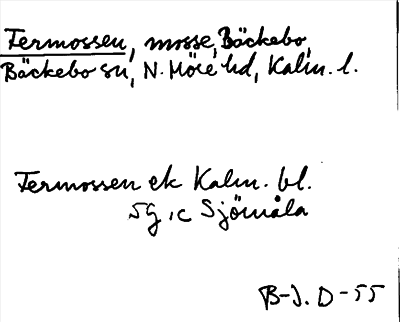 Fermossen, mosse, Bäckebo,
Bäckebo sn, N. Möre hd, Kalm. l.
Fermossen ek Kalm. bl.
5g, c Sjömåla
B-J. D-55